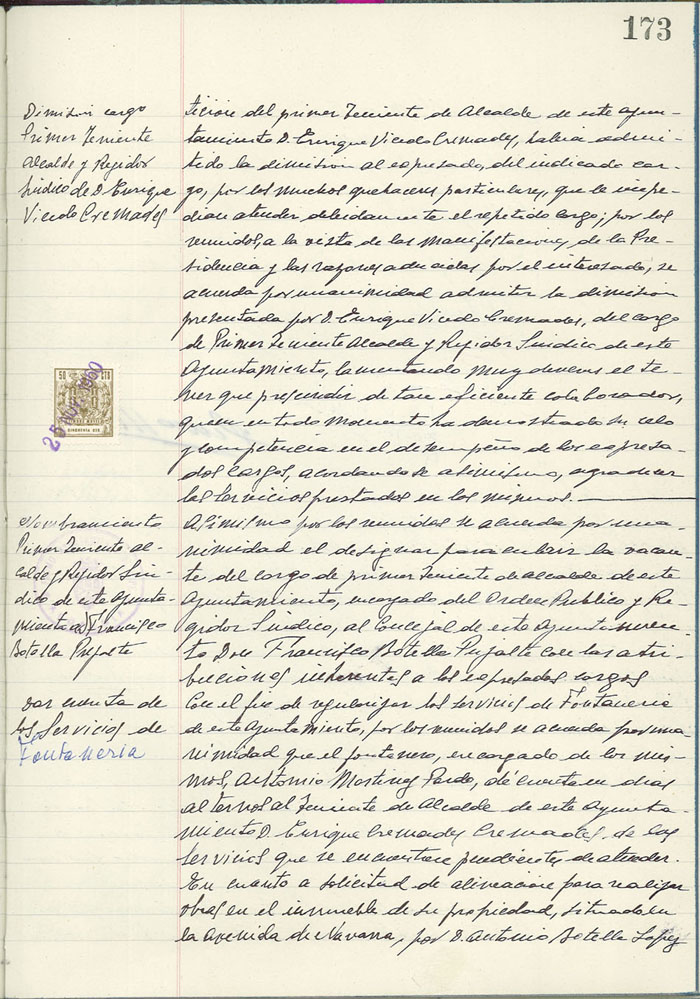 173
Dimisión cargo
Primer Teniente
Alcalde y Regidor
Síndico de D. Enrique
Vicedo Cremades
ticion del primer Teniente de Alcalde de este ayun-
tamiento D. Enrique Vicedo Cremades, habia admi-
tido la dimision al expresado, del indicado car-
go, por los muchos quehaceres particulares, que le impe-
dian atender debidamente el repetido cargo; por los
reunidos, a la vista de las manifestaciones de la Pre-
sidencia y las razones aducidas por el interesado, se
acuerda por unanimidad admitir la dimision
presentada por D. Enrique Vicedo Cremades, del cargo
de Primer Teniente Alcalde y Regidor Sindico de este
Ayuntamiento, lamentando muy deveras el te-
ner que prescindir de tan eficiente colaborador,
quien en todo momento ha demostrado su celo
y competencia en el desempeño de los expresa-
dos cargos, acordandose asimismo, agradecer
los servicios prestados en los mismos.
50 CTS
CINCUENTA CTS
25 NOV. 1960
Nombramiento
Primer Teniente al-
calde y Regidor Sín-
dico de este Ayunta-
miento a D. Francisco
Botella Pujalte
Asimismo por los reunidos se acuerda por una-
nimidad el designar para cubrir la vacan-
te del cargo de primer Teniente de alcalde de este
Ayuntamiento, encargado del Orden Publico y Re-
gidor Sindico, al Concejal de este Ayuntamien-
to Don Francisco Botella Pujalte con las atri-
buciones inherentes a los expresados cargos
Dar cuenta de
los Servicios de
Fontaneria
Con el fin de regularizar los servicios de Fontaneria
de este Ayuntamiento, por los reunidos se acuerda por una-
nimidad que el fontanero, encargado de los mis-
mos, Antonio Martinez Pardo, dé cuenta en dias
alternos al Teniente de Alcalde de este Ayunta-
miento D. Enrique Cremades Cremades, de los
servicios que se encuentren pendientes de atender.
En cuanto a solicitud de alineacion para realizar
obras en el inmueble de su propiedad, situado en
la Avenida de Navarra, por D. Antonio Botella Lopez